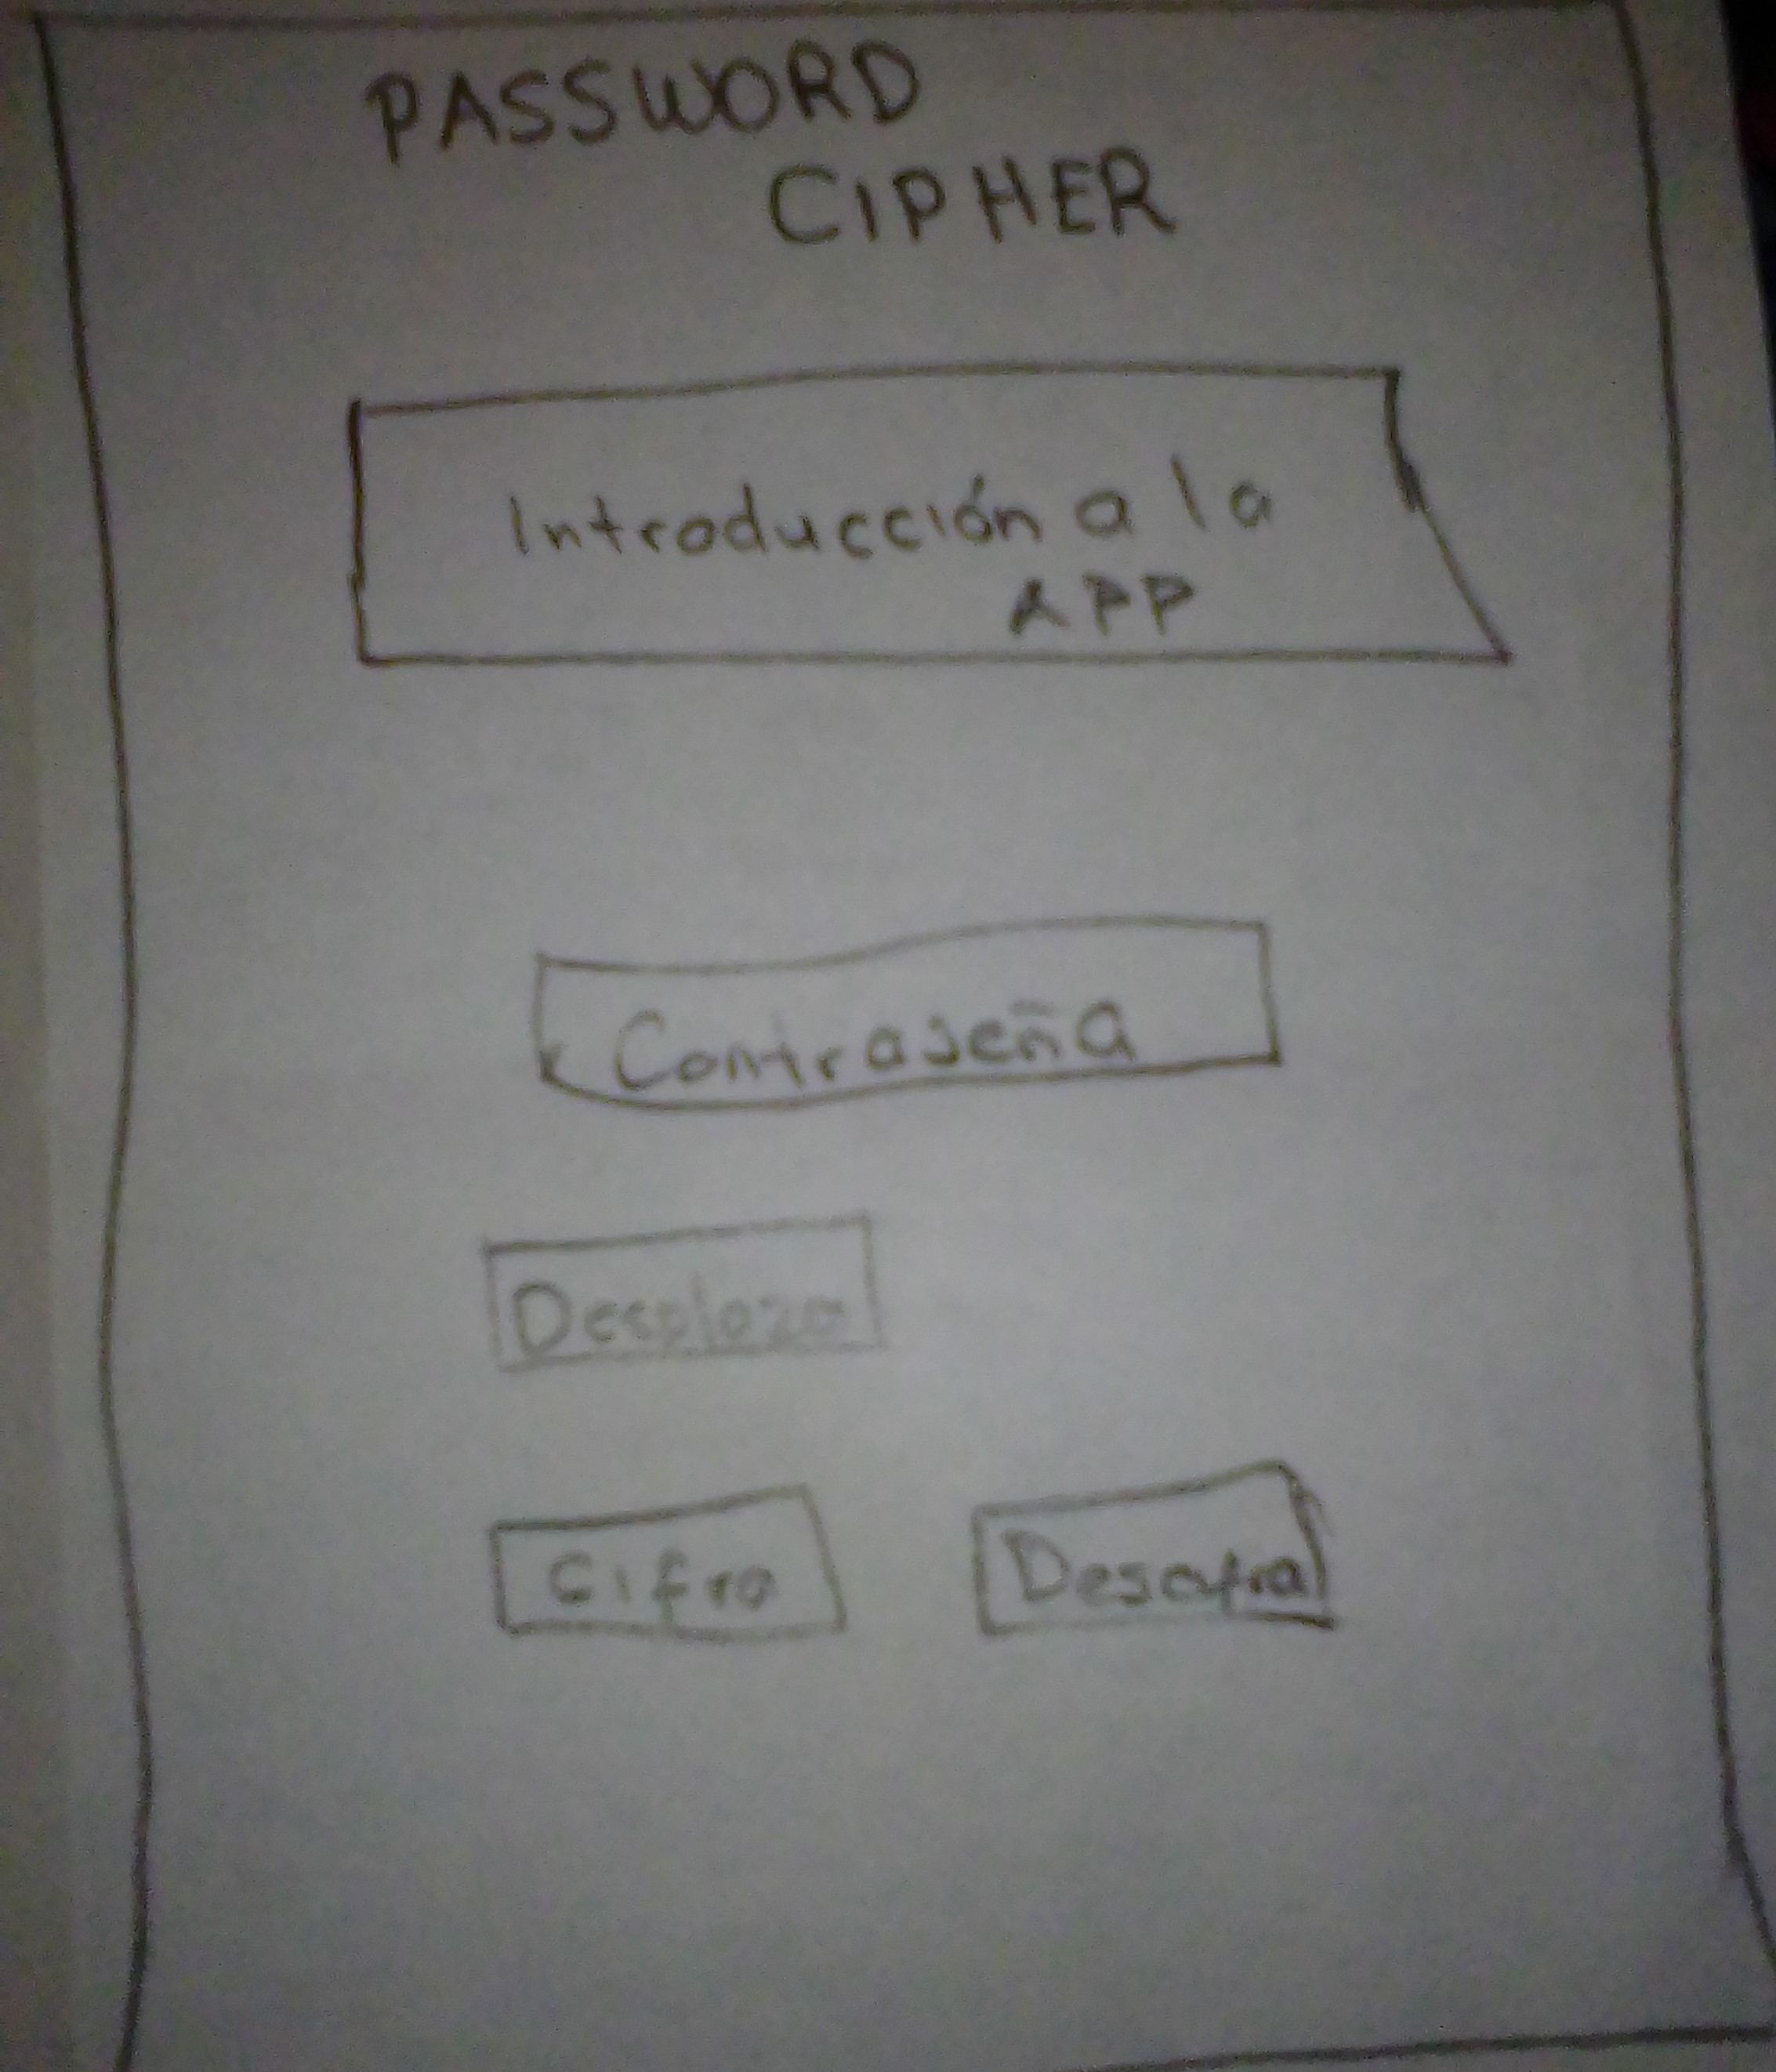 PASSWORD
CIPHER
Introducción a la
APP
Contraseña
Desplaza
Cifra